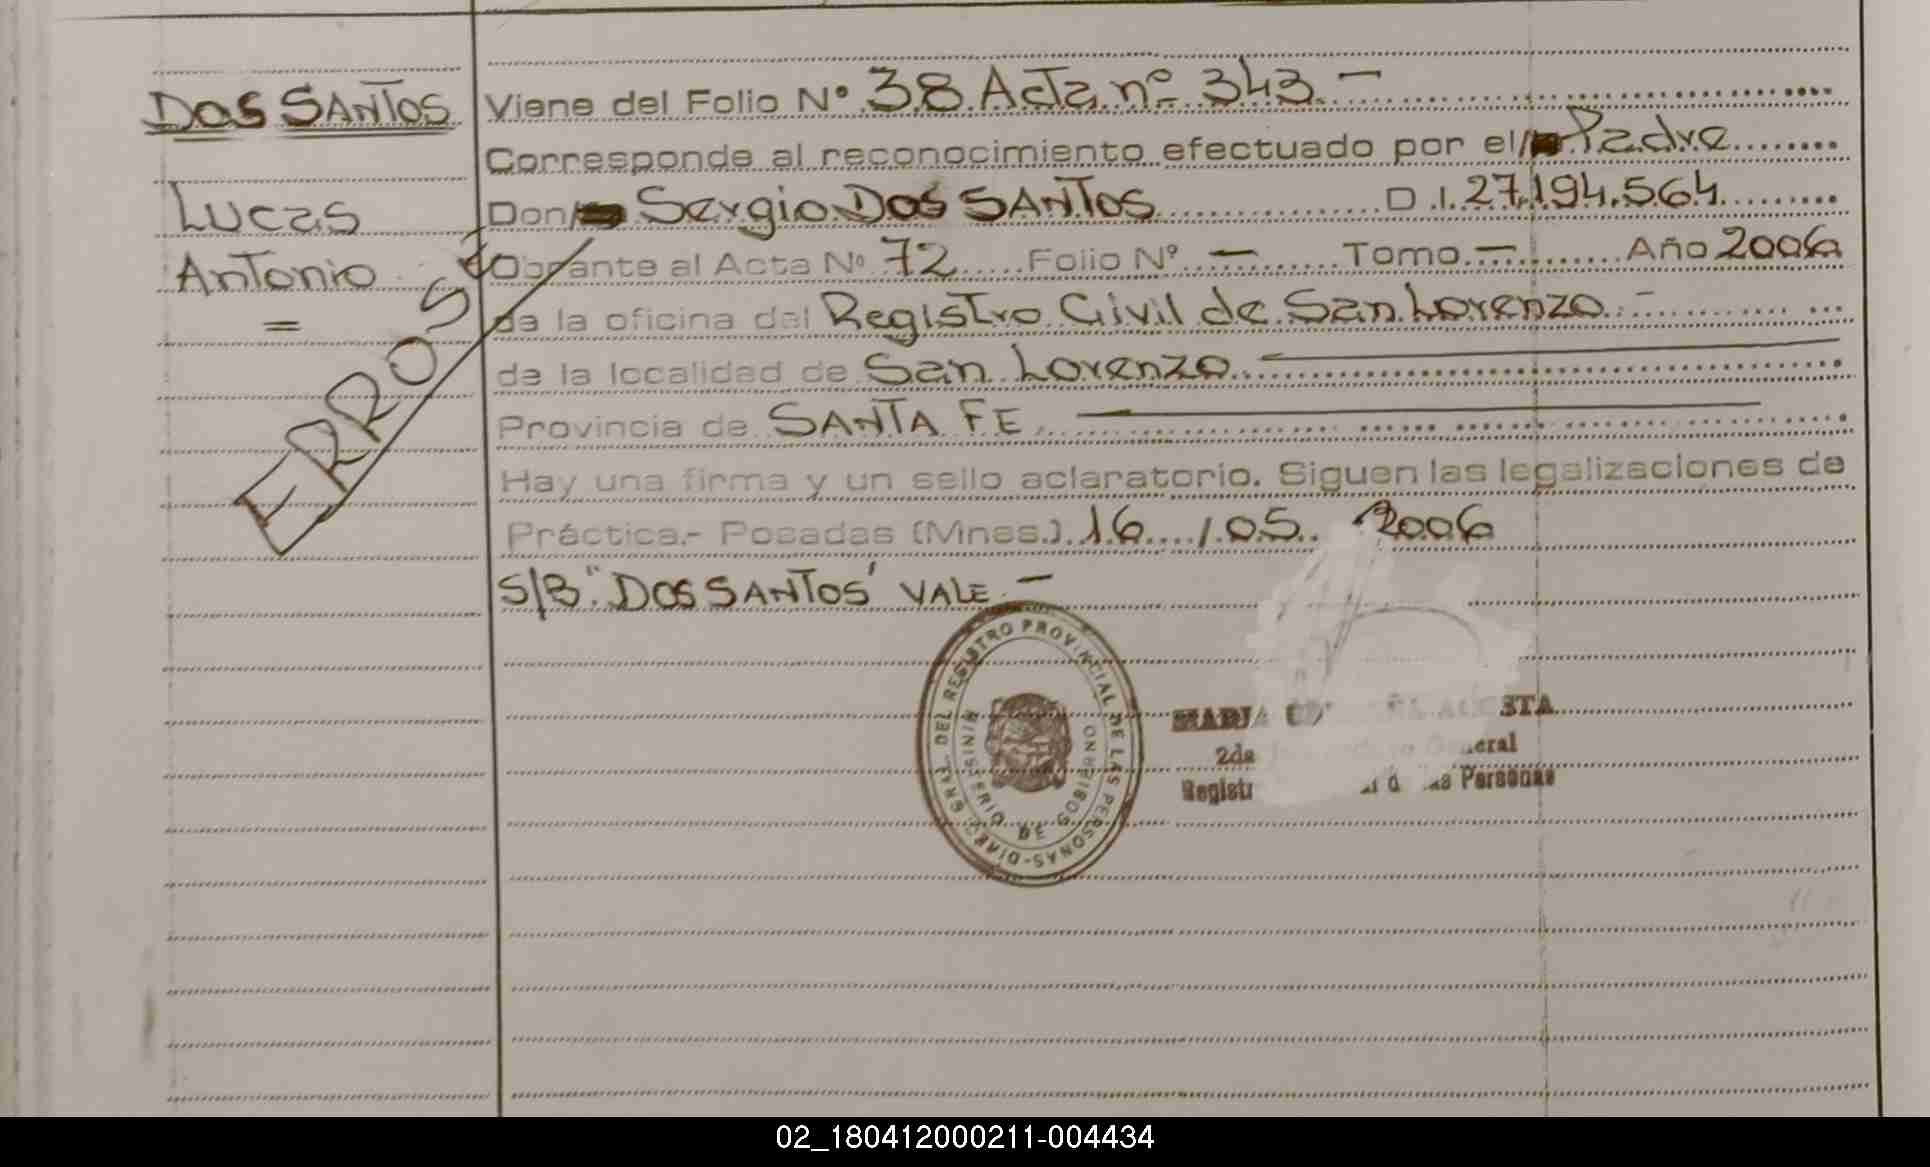 DOS SANTOS
Lucas
Antonio
=
ERROSE
Viene del Folio Nº 38 Acta nº 343.—
Corresponde al reconocimiento efectuado por el/ Padre
Don/ Sergio DOS SANTOS D.I. 27.194.564
Obrante al Acta Nº 72 Folio Nº — Tomo — Año 2006
de la oficina del Registro Civil de San Lorenzo.-
de la localidad de San Lorenzo
Provincia de SANTA FE
Hay una firma y un sello aclaratorio. Siguen las legalizaciones de
Práctica.- Posadas (Mnes.) 16 / 05 2006
S/B "DOS SANTOS" VALE —
DIREC. GRAL. DEL REGISTRO PROVINCIAL DE LAS PERSONAS-
MINISTERIO DE GOBIERNO
MARIA
2da General
Personas
02_180412000211-004434